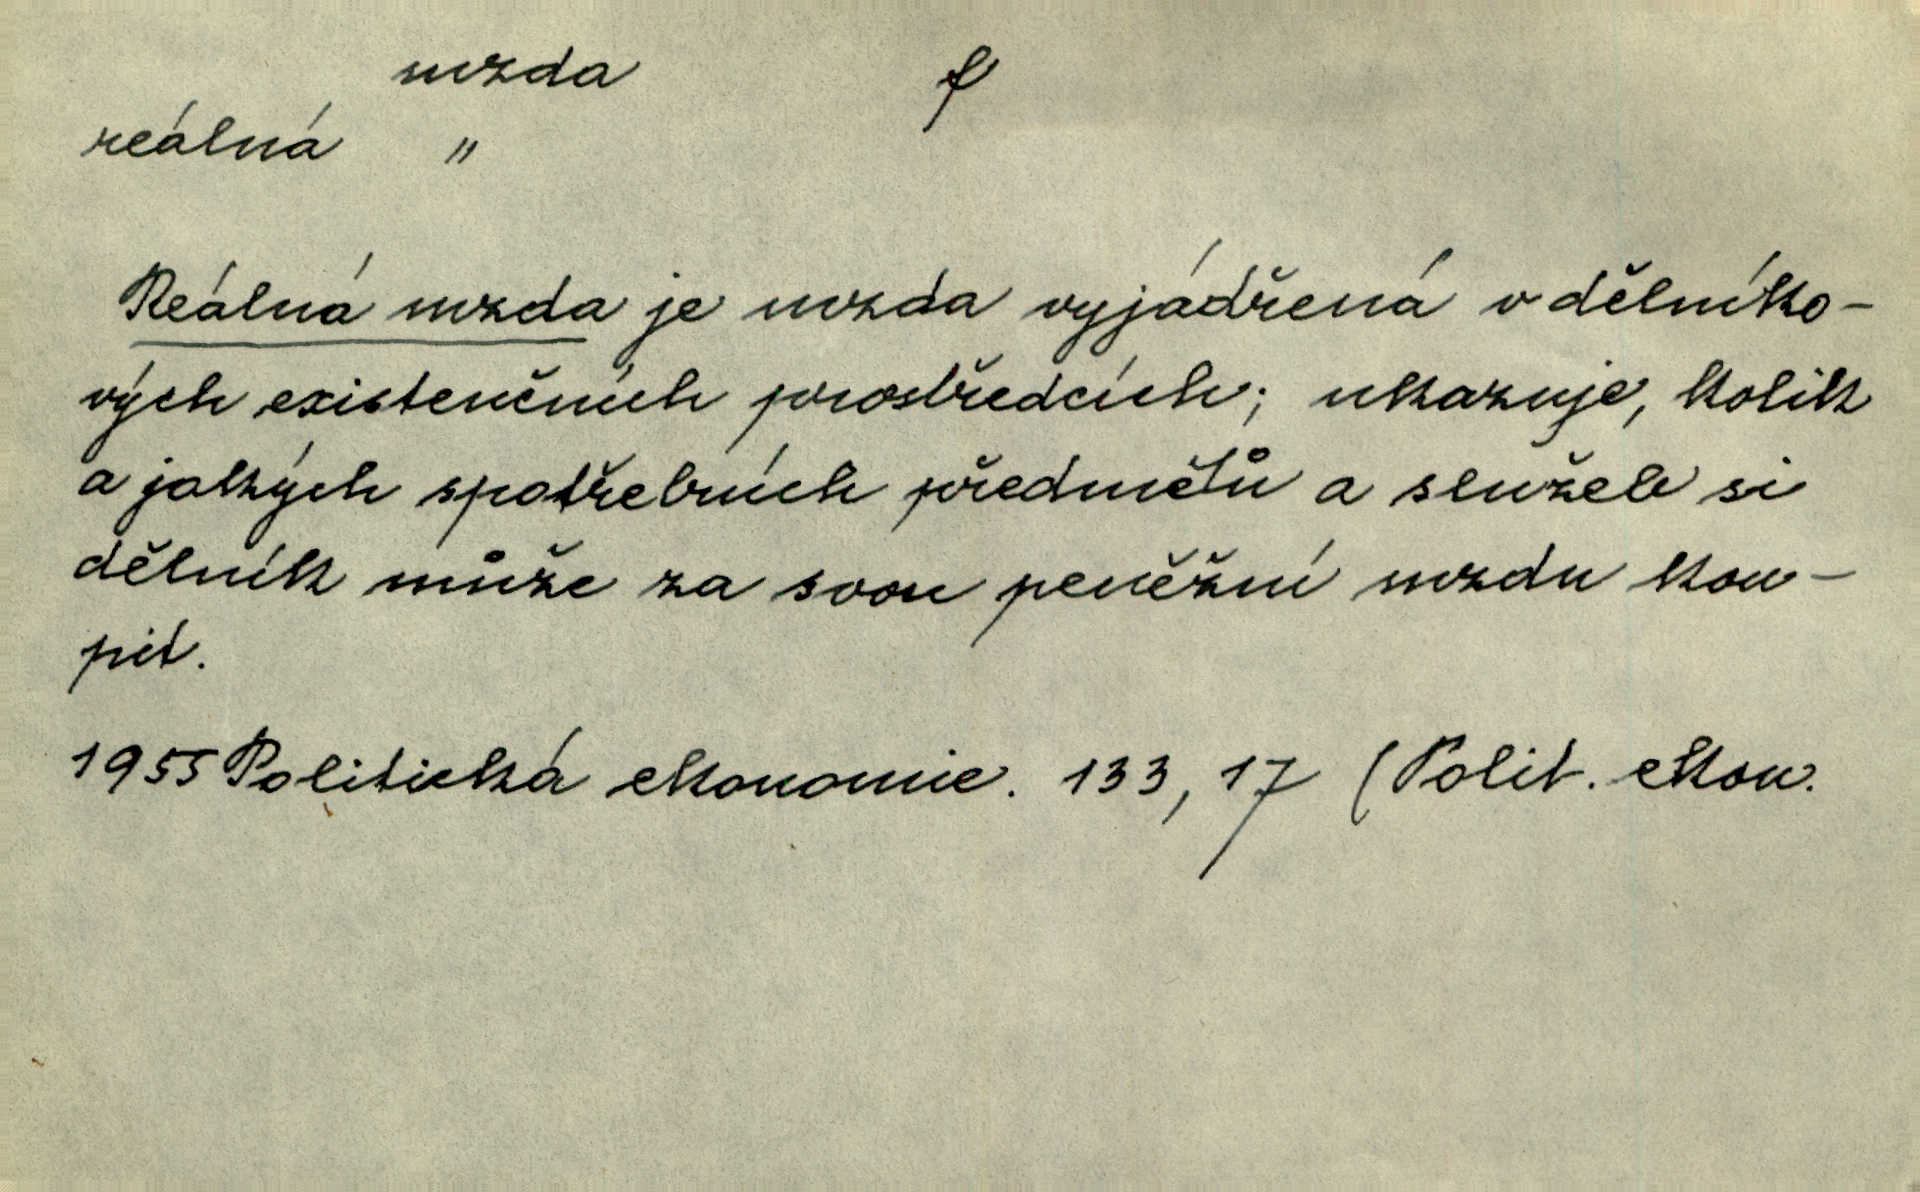 mzda f
reálná "
Reálná mzda je mzda vyjádřená v dělníko-
vých existenčních prostředcích; ukazuje, kolik
a jakých spotřebních předmětů a služeb si
dělník může za svou peněžní mzdu kou-
pit.
1955 Politická ekonomie. 133, 17 (Polit. ekon.